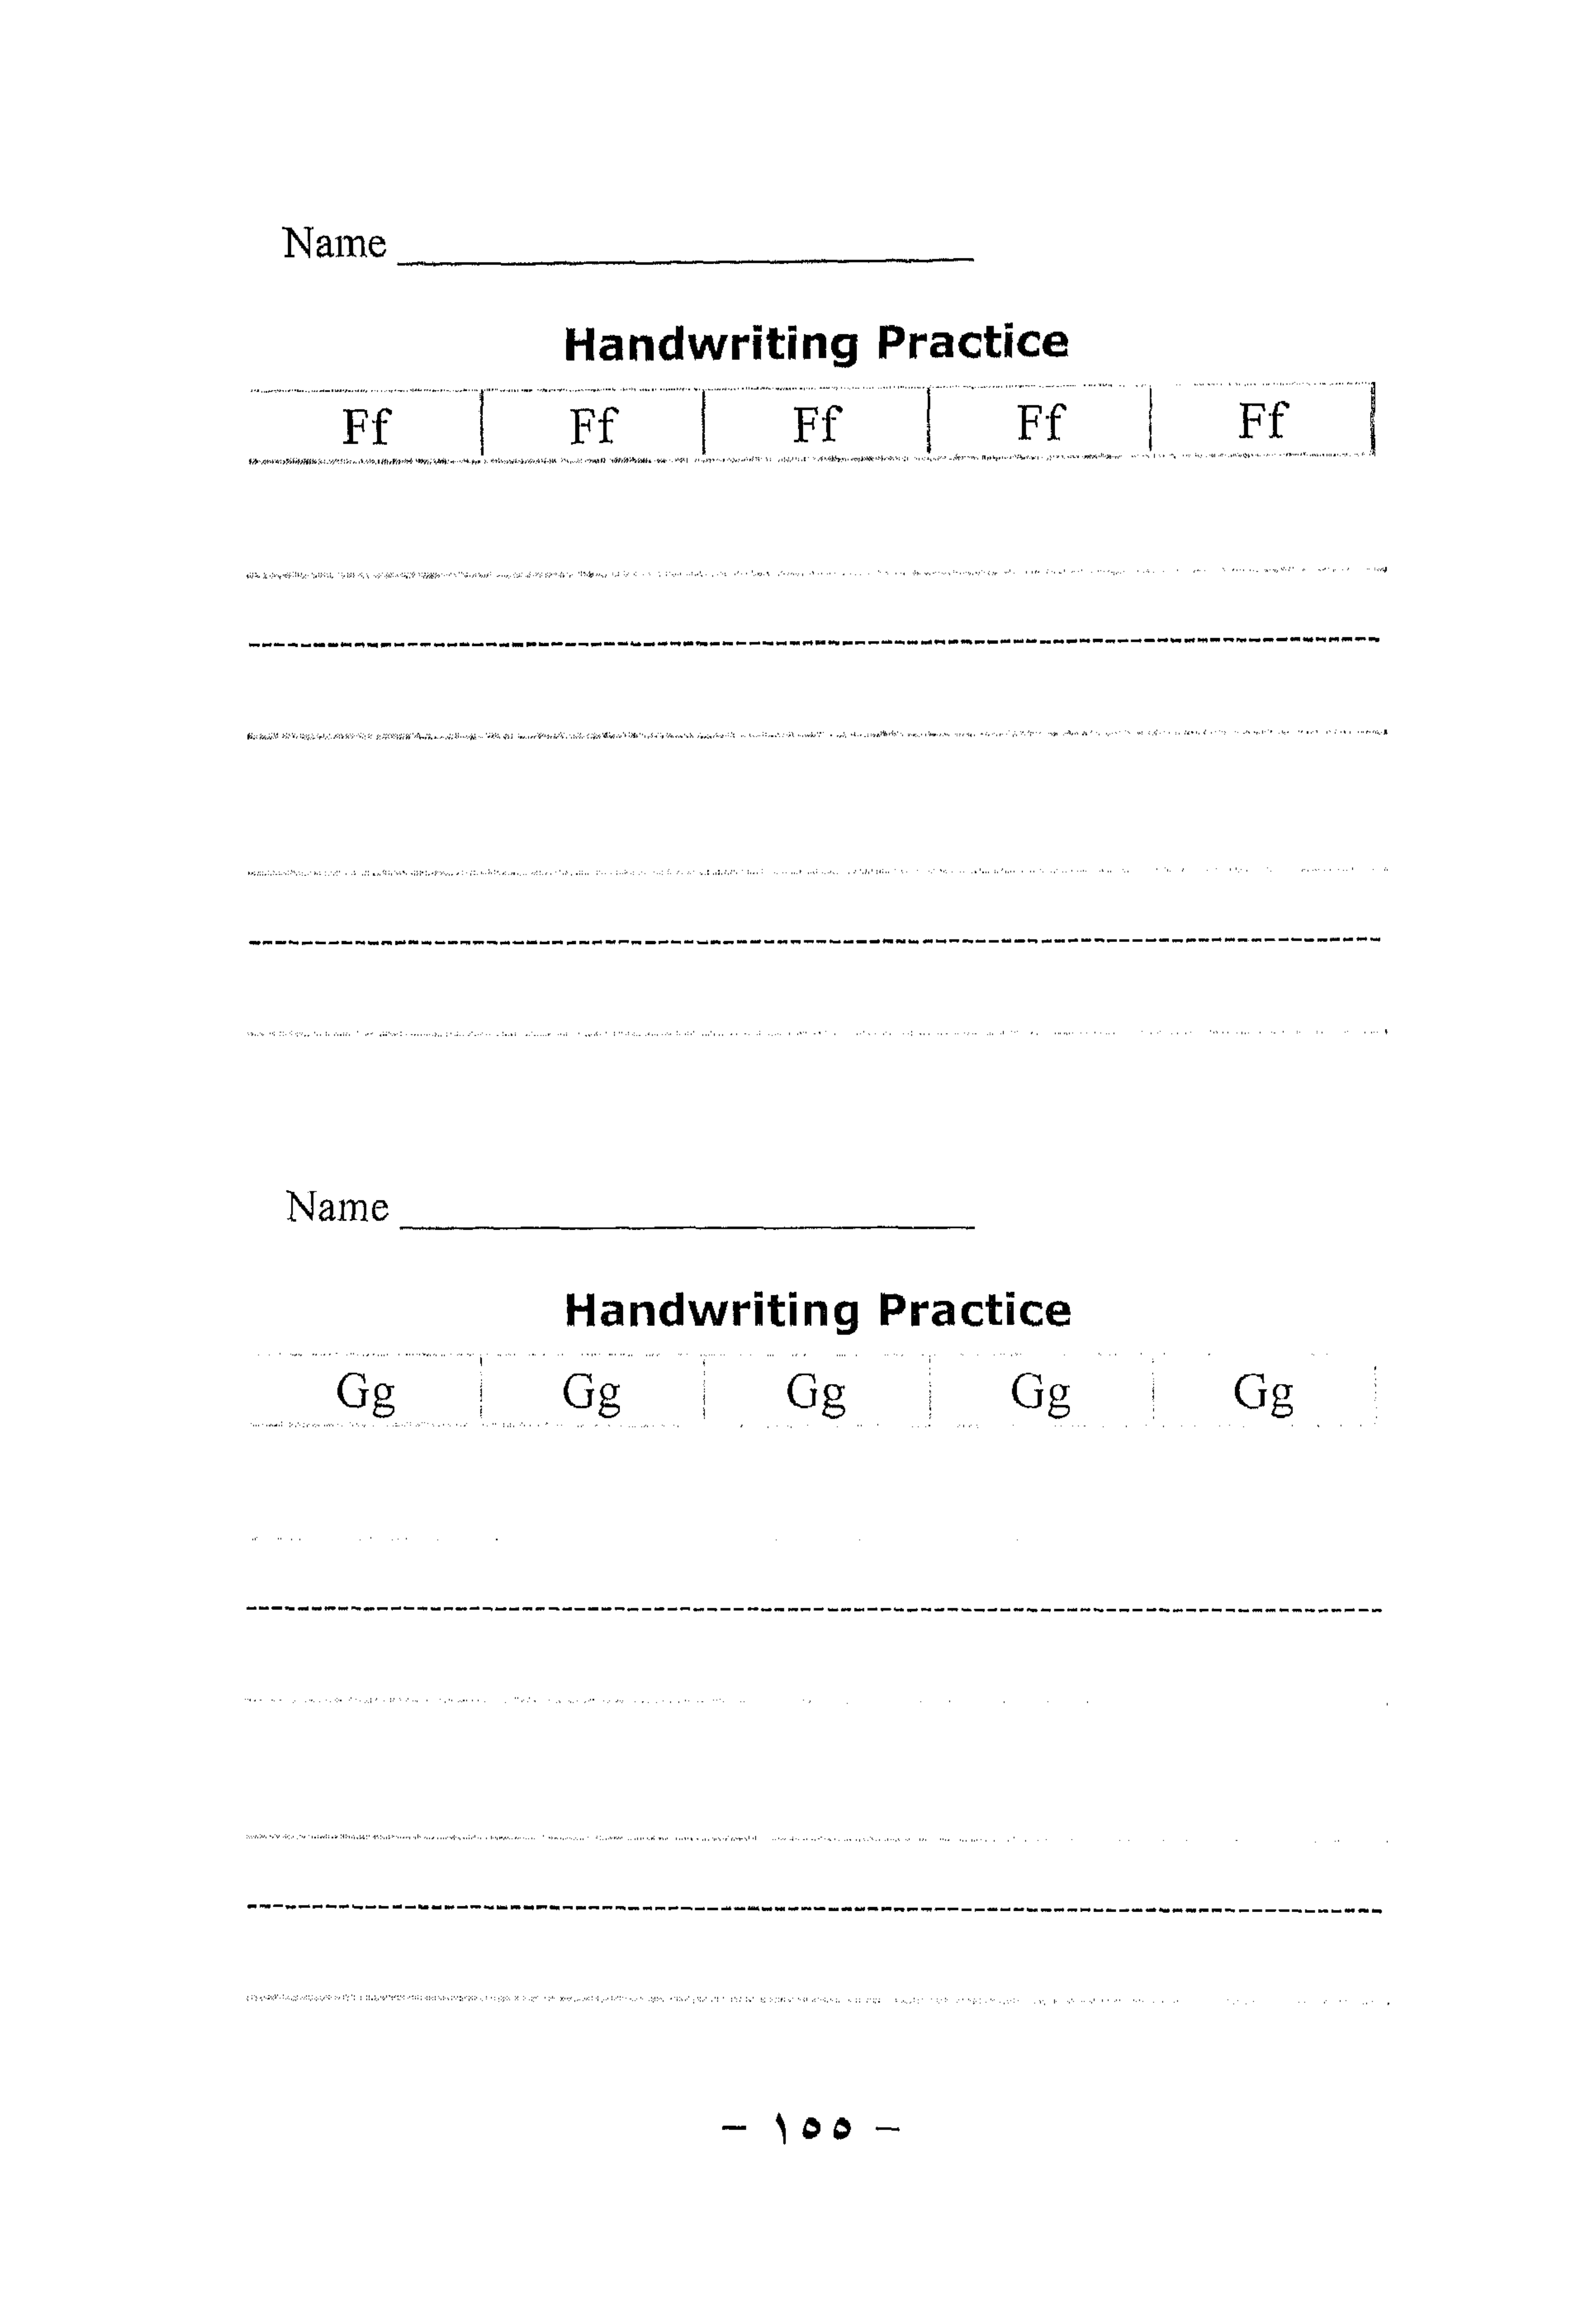 Name
Handwriting Practice
Ff Ff Ff Ff Ff
Name
Handwriting Practice
Gg Gg Gg Gg Gg
– ١٥٥ –